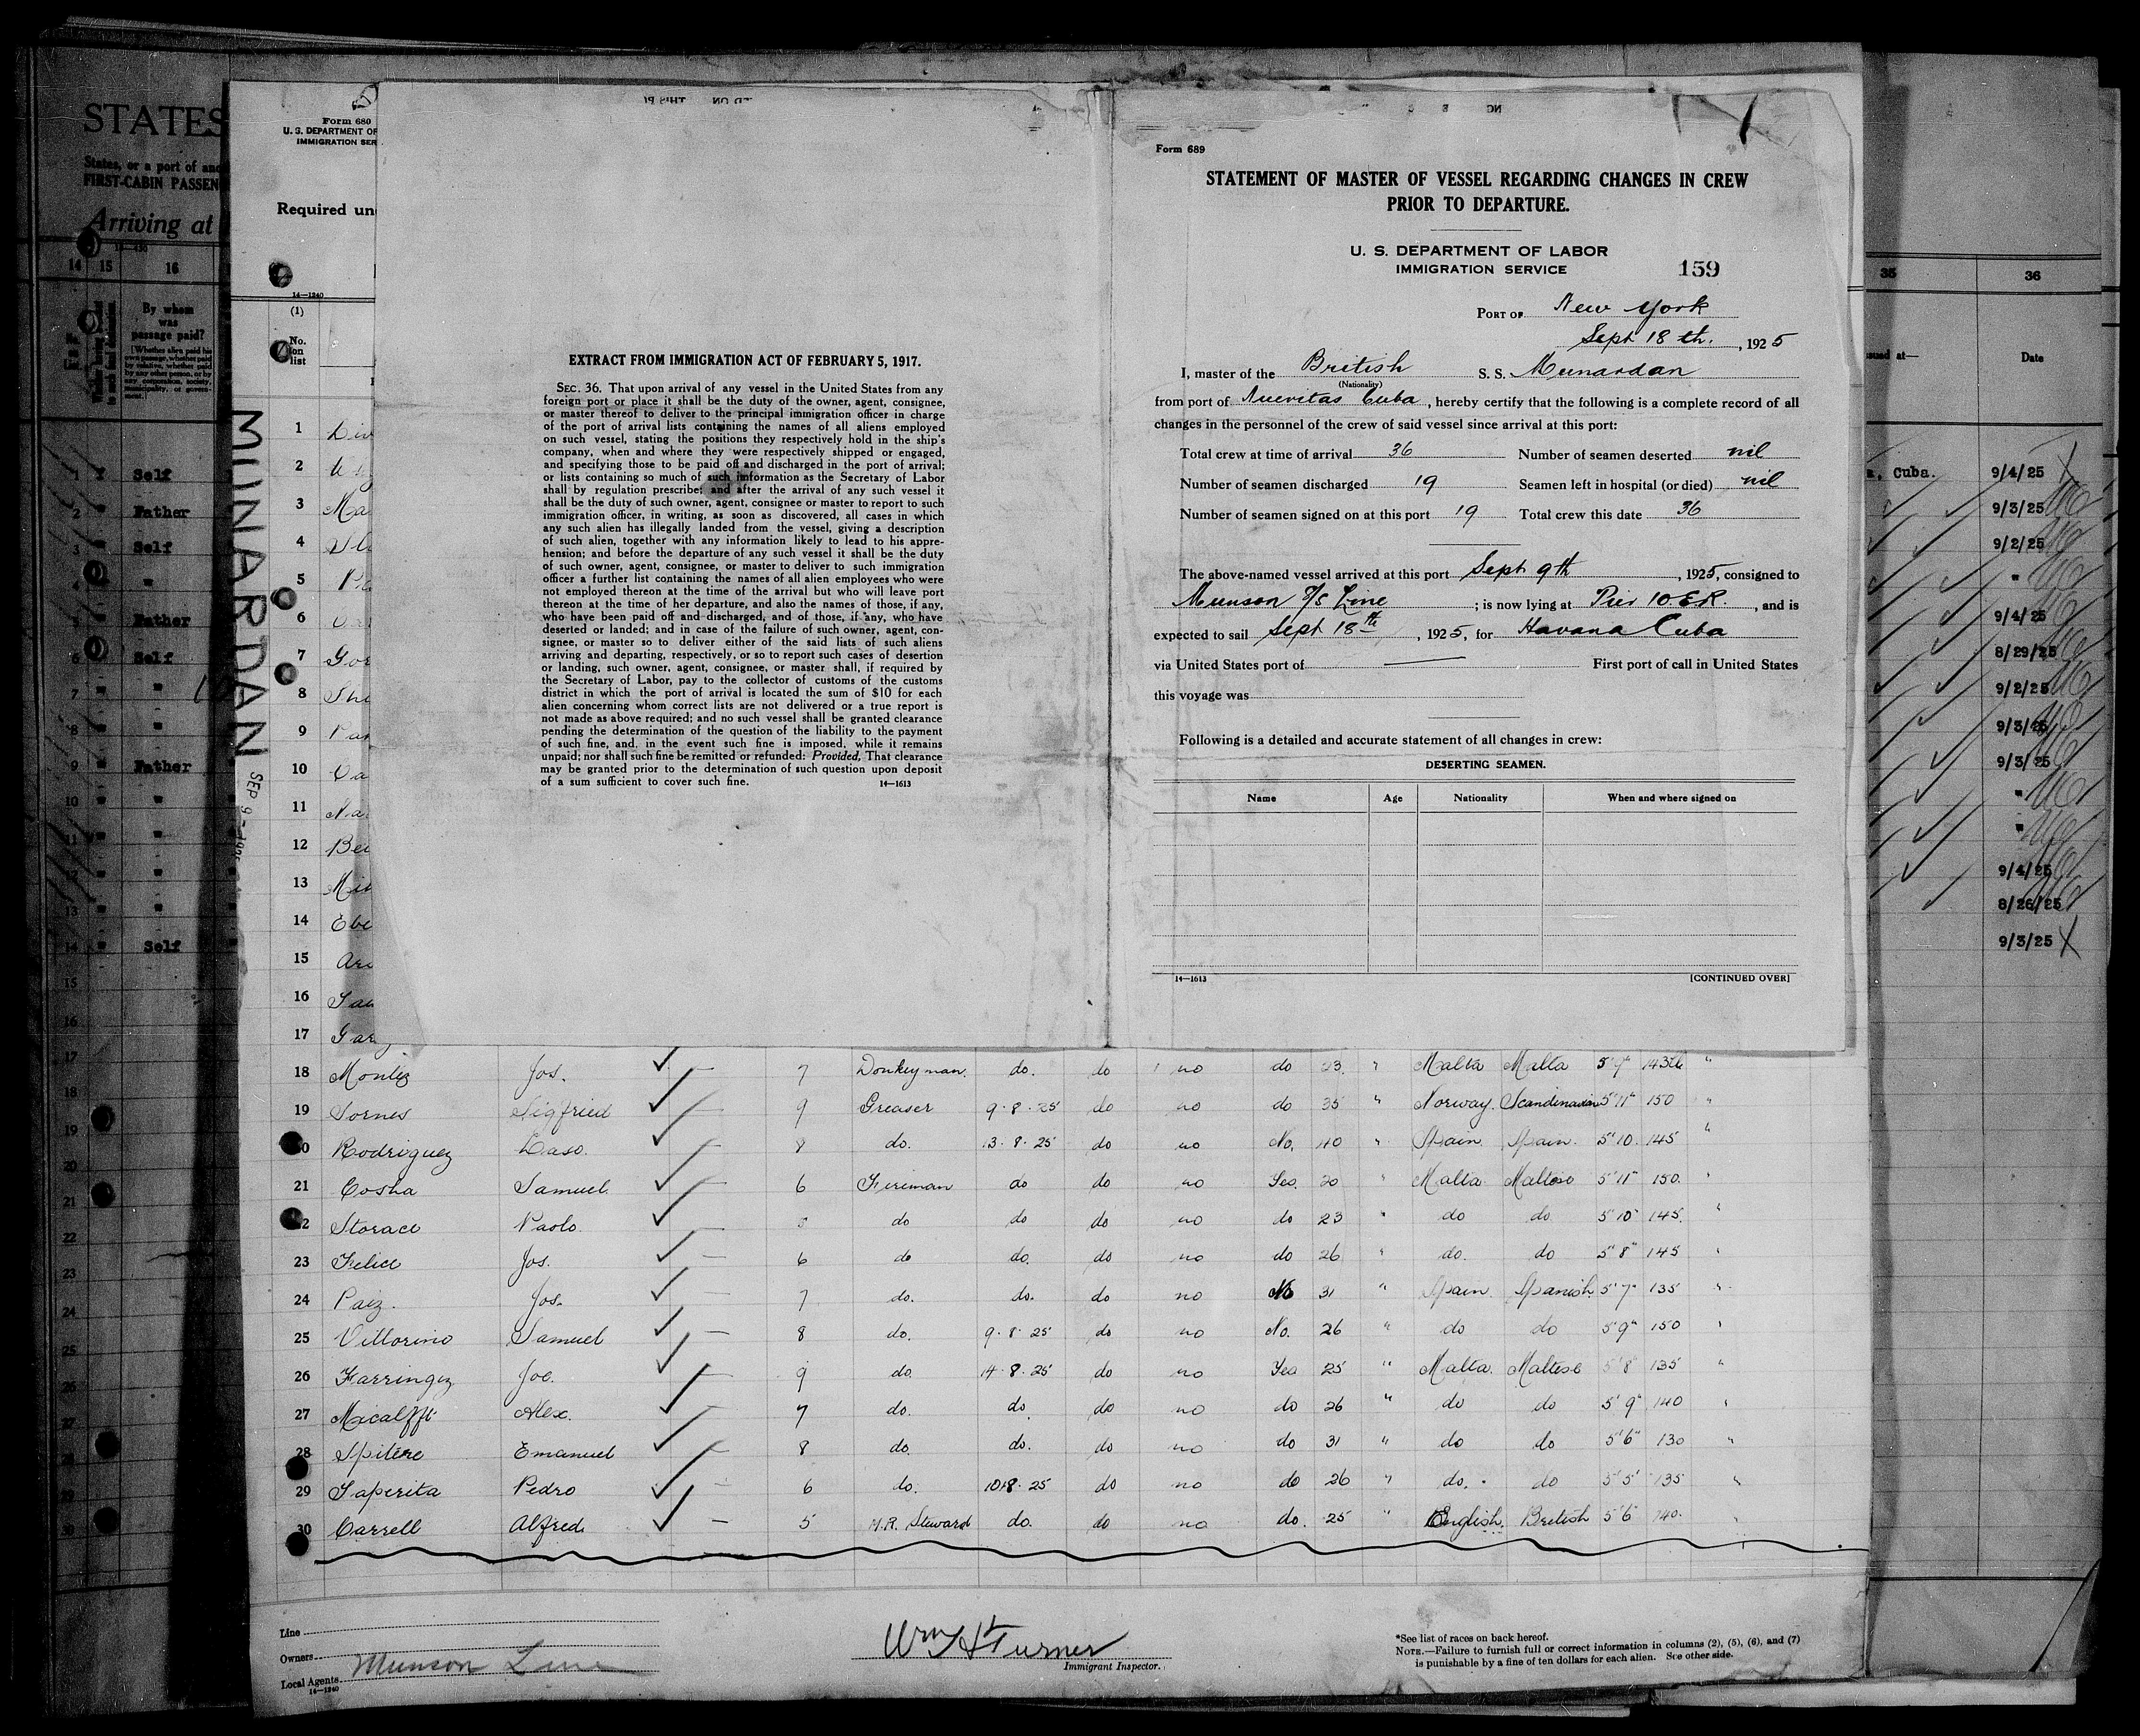 STATES
States, or a port of
FIRST-CABIN
Arriving at
14 15 16
By whom
was
passage paid?
1 Self
2 Father
3 Self
4 "
5 Father
6 Self
7 "
8 "
9 Father
10 "
11 "
12 "
13 "
14 " Self
15
16
17
18
19
20
21
22
23
24
25
26
27
28
29
30
MUNARDAN
SEP 9-
Form 680
U. S. DEPARTMENT OF
IMMIGRATION SER
Required un
14—1240
(1)
No.
on
list
1
2
3 Ma
4
5
6
7 Gor
8
9
10
11 Na
12 Be
13
14 Ebe
15
16
17 Gar
EXTRACT FROM IMMIGRATION ACT OF FEBRUARY 5, 1917.
SEC. 36. That upon arrival of any vessel in the United States from any
foreign port or place it shall be the duty of the owner, agent, consignee,
or master thereof to deliver to the principal immigration officer in charge
of the port of arrival lists containing the names of all aliens employed
on such vessel, stating the positions they respectively hold in the ship's
company, when and where they were respectively shipped or engaged,
and specifying those to be paid off and discharged in the port of arrival;
or lists containing so much of such information as the Secretary of Labor
shall by regulation prescribe; and after the arrival of any such vessel it
shall be the duty of such owner, agent, consignee or master to report to such
immigration officer, in writing, as soon as discovered, all cases in which
any such alien has illegally landed from the vessel, giving a description
of such alien, together with any information likely to lead to his appre-
hension; and before the departure of any such vessel it shall be the duty
of such owner, agent, consignee, or master to deliver to such immigration
officer a further list containing the names of all alien employees who were
not employed thereon at the time of the arrival but who will leave port
thereon at the time of her departure, and also the names of those, if any,
who have been paid off and discharged, and of those, if any, who have
deserted or landed; and in case of the failure of such owner, agent, con-
signee, or master so to deliver either of the said lists of such aliens
arriving and departing, respectively, or so to report such cases of desertion
or landing, such owner, agent, consignee, or master shall, if required by
the Secretary of Labor, pay to the collector of customs of the customs
district in which the port of arrival is located the sum of $10 for each
alien concerning whom correct lists are not delivered or a true report is
not made as above required; and no such vessel shall be granted clearance
pending the determination of the question of the liability to the payment
of such fine, and, in the event such fine is imposed, while it remains
unpaid; nor shall such fine be remitted or refunded: Provided, That clearance
may be granted prior to the determination of such question upon deposit
of a sum sufficient to cover such fine. 14—1613
Form 689
STATEMENT OF MASTER OF VESSEL REGARDING CHANGES IN CREW
PRIOR TO DEPARTURE.
U. S. DEPARTMENT OF LABOR
IMMIGRATION SERVICE 159
PORT OF New York
Sept 18 th. , 1925
I, master of the British S. S. Munardan
(Nationality)
from port of Nuevitas Cuba, hereby certify that the following is a complete record of all
changes in the personnel of the crew of said vessel since arrival at this port:
Total crew at time of arrival 36 Number of seamen deserted nil
Number of seamen discharged 19 Seamen left in hospital (or died) nil
Number of seamen signed on at this port 19 Total crew this date 36
The above-named vessel arrived at this port Sept 9th , 1925, consigned to
Munson S/S Line ; is now lying at Pier 10 E.R. , and is
expected to sail Sept 18th , 1925, for Havana Cuba
via United States port of — First port of call in United States
this voyage was
Following is a detailed and accurate statement of all changes in crew:
DESERTING SEAMEN.
Name Age Nationality When and where signed on
14—1613 [CONTINUED OVER]
35 36
ssued at— Date
Cuba. 9/4/25
9/3/25
9/2/25
"
9/4/25
8/29/25
9/2/25
9/3/25
9/3/25
"
"
9/4/25
8/26/25
9/3/25
18 Jos. — 7 Donkeyman. do. do no do 23 " Malta Malta 143
19 Sornes Sigfried — 9 Greaser 9·8·25 do no do 35 " Norway. Scandinavian 5'11" 150 "
Rodriguez — 8 do. 13·8·25 do no No. 40 " Spain. Spain. 5'10 145 "
21 Cosha Samuel — 6 Fireman do do no Yes. 20 " Malta Maltese 5'11" 150. "
Storace Paolo — do do do no do 23 " do do 5'10" 145. "
23 Felice Jos. — 6 do do. do no do 26 " do. do 5'8" 145 "
24 Paiz. Jos. — 7 do. do. do no No 31 " Spain. Spanish 5'7" 135 "
25 Vittorino Samuel — 8 do. 9·8·25 do no No. 26 " do do 5'9" 150 "
26 Farringez Joe. — 9 do. 14·8·25 do no Yes 25 " Malta. Maltese 5'8" 135 "
27 Alex. — 7 do. do. do no do 26 " do do 5'9" 140 "
28 Spitere Emanuel — 8 do. do. do no do 31 " do do 5'6" 130 "
29 Saperita Pedro — 6 do. 10·8·25 do no do 26 " do. do 5'5" 135 "
30 Carrell Alfred. — 5 M.R. Steward do. do no do. 25 " English. British 5'6" 140. "
Line
Owners
Local Agents Munson Line
14—1240
Wm H Turner
Immigrant Inspector.
*See list of races on back hereof.
NOTE.—Failure to furnish full or correct information in columns (2), (5), (6), and (7)
is punishable by a fine of ten dollars for each alien. See other side.